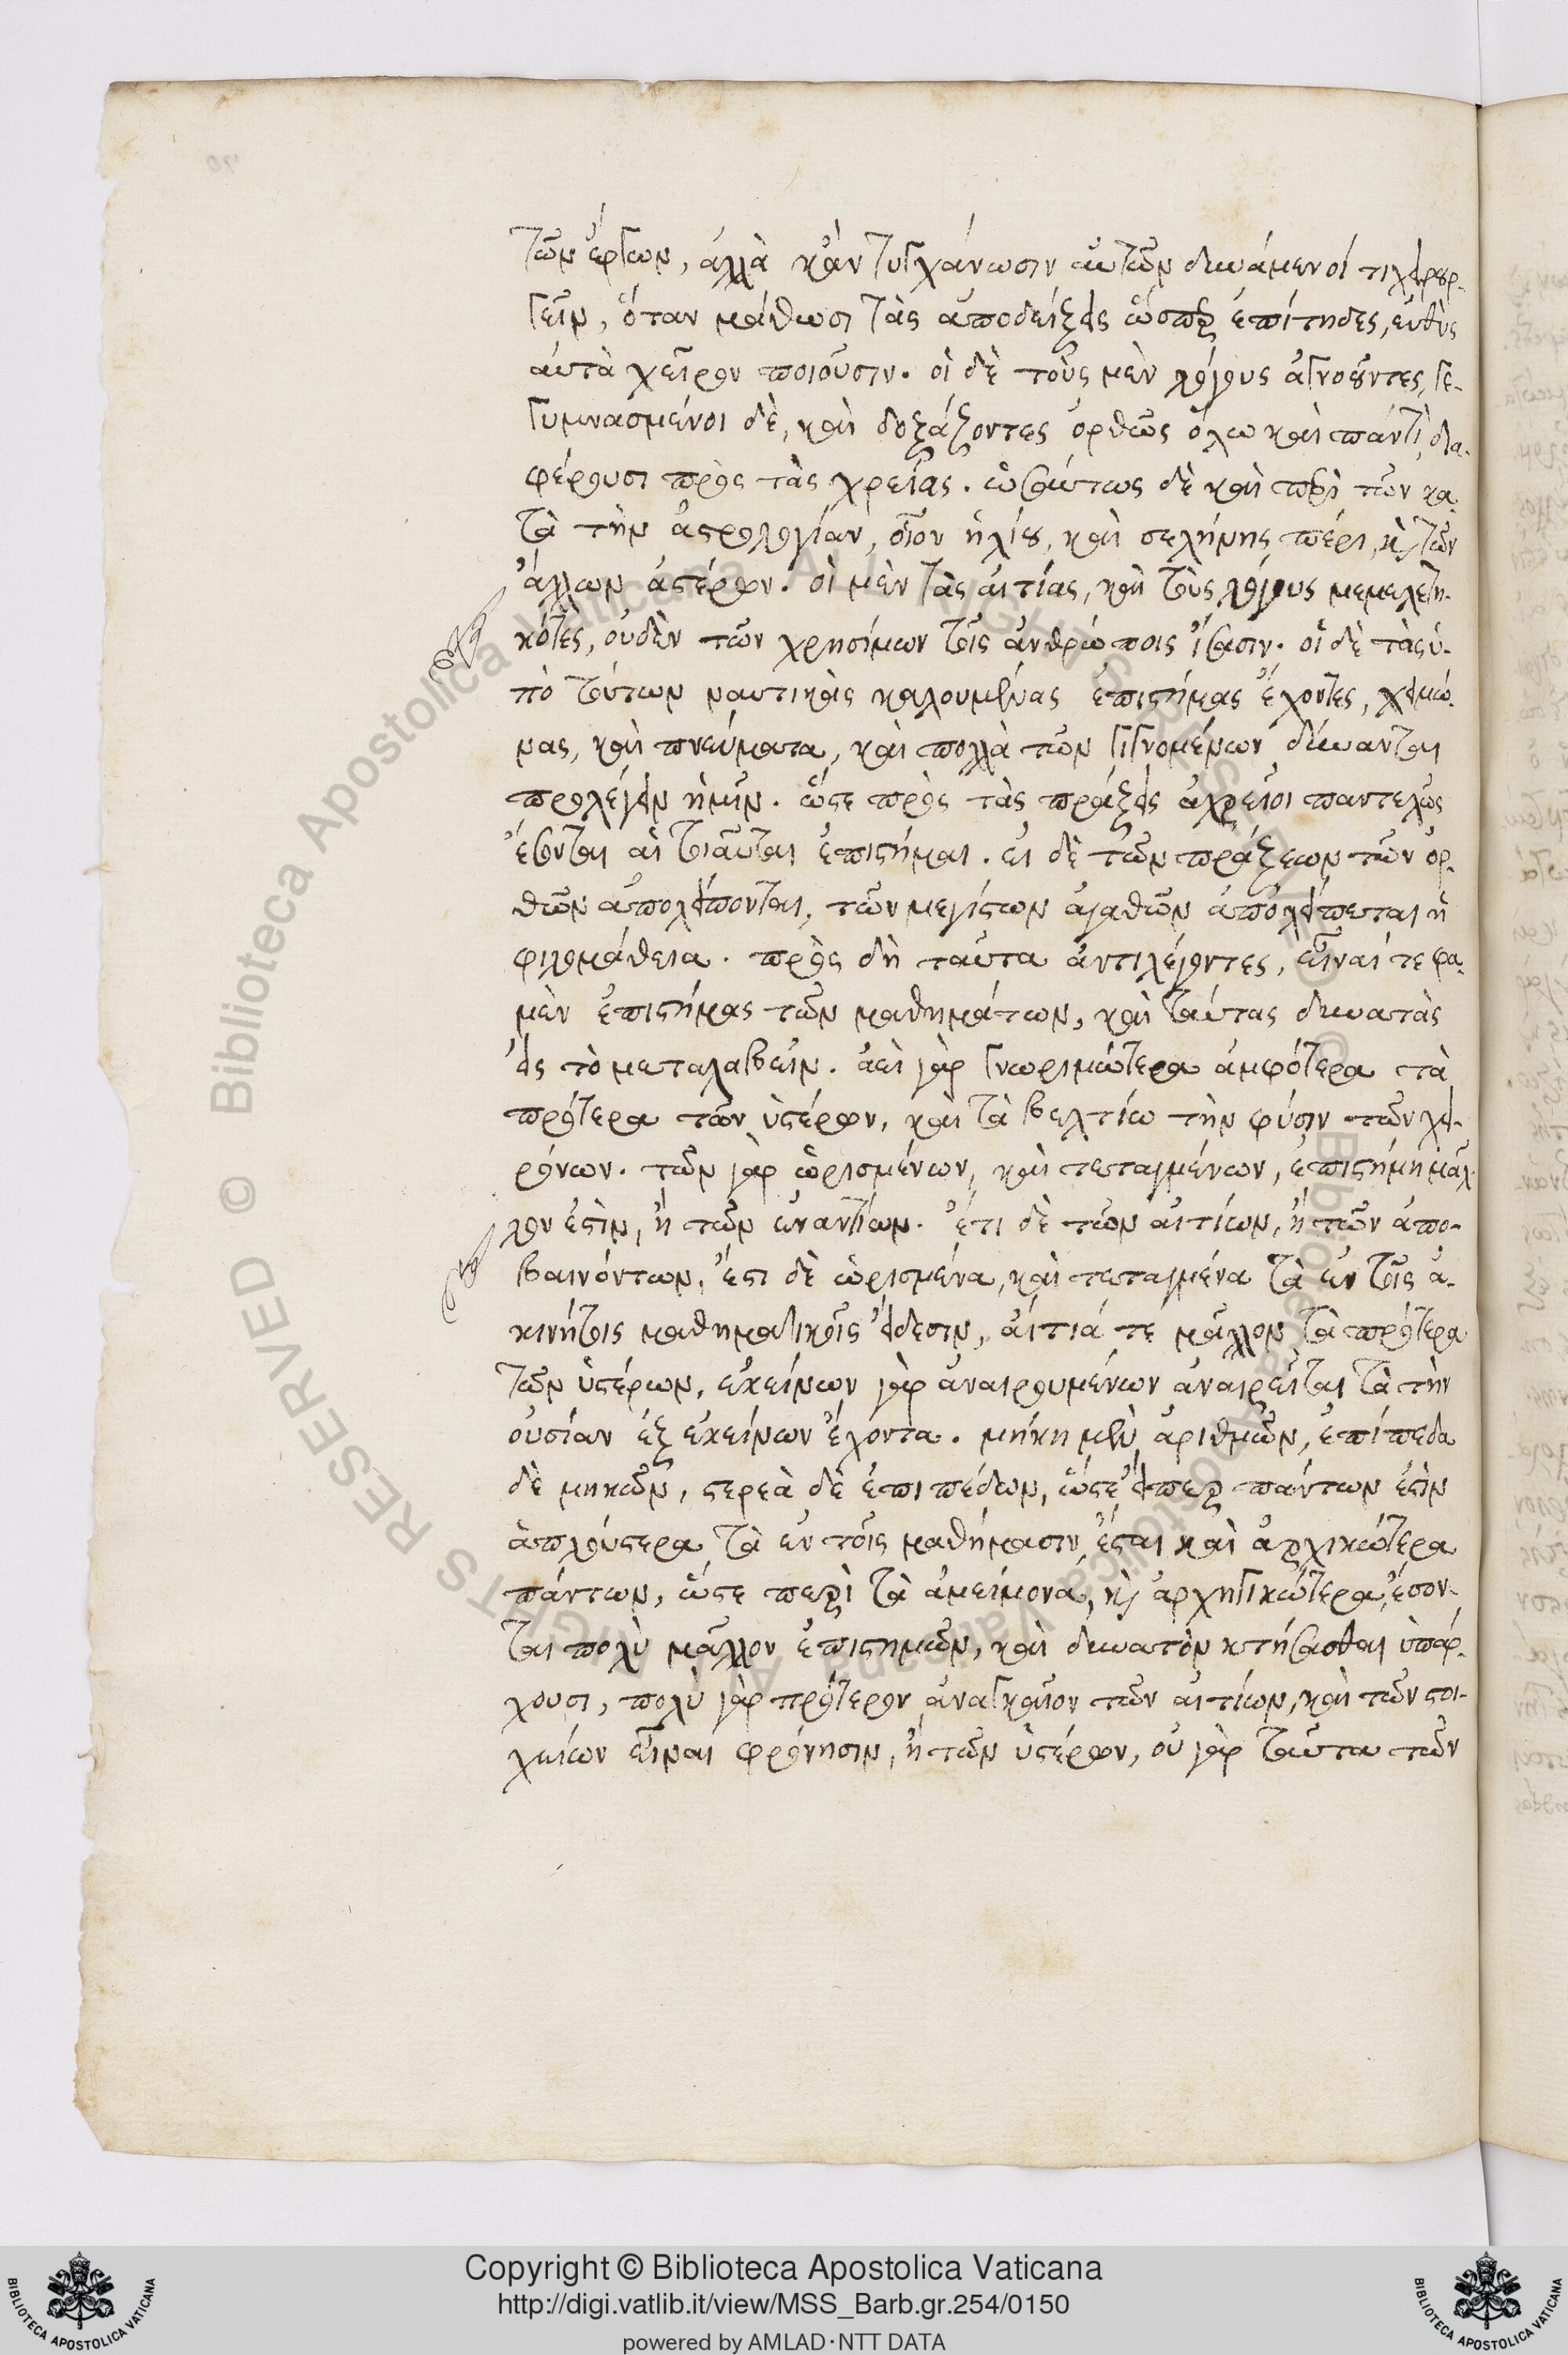 τῶν ἔργων, ἀλλὰ κἂν τυγχάνωσιν αὐτῶν δυνάμενοί τι χειρουρ-
γεῖν, ὅταν μάθωσι τὰς ἀποδείξεις ὥσπερ ἐπίτηδες, εὐθὺς
αὐτὰ χεῖρον ποιοῦσιν. οἱ δὲ τοὺς μὲν λόγους ἀγνοοῦντες, γε-
γυμνασμένοι δὲ, καὶ δοξάζοντες ὀρθῶς ὅλω καὶ παντὶ δια-
φέρουσι πρὸς τὰς χρείας. ὡσαύτως δὲ καὶ περὶ τῶν κα
τὰ τὴν ἀστρολογίαν, οἷον ἡλίου, καὶ σελήνης πέρι, καὶ τῶν
ἄλλων ἀστέρων. οἱ μὲν τὰς αἰτίας, καὶ τοὺς λόγους μεμελετη-
κότες, οὐδὲν τῶν χρησίμων τοῖς ἀνθρώποις ἴσασιν. οἱ δὲ τὰς ὑ-
πὸ τούτων ναυτικὰς καλουμένας ἐπιστήμας ἔχοντες, χειμῶ-
νας, καὶ πνεύματα, καὶ πολλὰ τῶν γιγνομένων δύνανται
προλέγειν ἡμῖν. ὥστε πρὸς τὰς πράξεις ἀχρεῖοι παντελῶς
ἔσονται αἱ τοιαῦται ἐπιστήμαι. εἰ δὲ τῶν πράξεων τῶν ὀρ-
θῶν ἀπολείπονται, τῶν μεγίστων ἀγαθῶν ἀπολείπεται ἡ
φιλομάθεια. πρὸς δὴ ταῦτα ἀντιλέγοντες, εἶναί τε φα-
μὲν ἐπιστήμας τῶν μαθημάτων, καὶ ταύτας δυνατὰς
εἰς τὸ μεταλαβεῖν. ἀεὶ γὰρ γνωριμώτερα ἀμφότερα τὰ
πρότερα τῶν ὑστέρων, καὶ τὰ βελτίω τὴν φύσιν τῶν χει-
ρόνων. τῶν γὰρ ὡρισμένων, καὶ τεταγμένων, ἐπιστήμη μᾶλ
λον ἐστὶν, ἢ τῶν ἐναντίων. ἔτι δὲ τῶν αἰτίων, ἢ τῶν ἀπο-
βαινόντων. ἔστι δὲ ὡρισμένα, καὶ τεταγμένα τὰ ἐν τοῖς ἀ-
κινήτοις μαθηματικοῖς εἴδεσιν, αἴτιά τε μᾶλλον τὰ πρότερα
τῶν ὑστέρων, ἐκείνων γὰρ ἀναιρουμένων ἀναιρεῖται τὰ τὴν
οὐσίαν ἐξ ἐκείνων ἔχοντα. μήκη μὲν ἀριθμῶν, ἐπίπεδα
δὲ μηκῶν, στερεὰ δὲ ἐπιπέδων, ὥστε εἴπερ πάντων ἐστὶν
ἁπλούστερα τὰ ἐν τοῖς μαθήμασιν, ἔσται καὶ ἀρχικώτερα
πάντων, ὥστε περὶ τὰ ἀμείμονα, καὶ ἀρχηγικώτερα, ἔσον-
ται πολὺ μᾶλλον ἐπιστημῶν, καὶ δυνατὸν κτήσασθαι ὑπάρ-
χουσι, πολὺ γὰρ πρότερον ἀναγκαῖον τῶν αἰτίων, καὶ τῶν στοι-
χείων εἶναί φρόνησιν, ἢ τῶν ὑστέρων, οὐ γὰρ ταῦτα τῶν
Copyright © Biblioteca Apostolica Vaticana
http://digi.vatlib.it/view/MSS_Barb.gr.254/0150
powered by AMLAD·NTT DATA
BIBLIOTECA APOSTOLICA VATICANA
BIBLIOTECA APOSTOLICA VATICANA